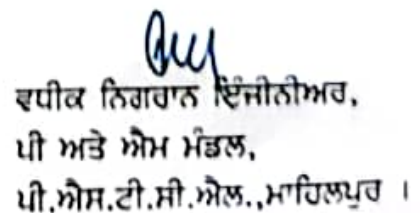 ਵਧੀਕ ਨਿਗਰਾਨ ਇੰਜੀਨੀਅਰ,
ਪੀ ਅਤੇ ਐਮ ਮੰਡਲ,
ਪੀ.ਐਸ.ਟੀ.ਸੀ.ਐਲ.,ਮਾਹਿਲਪੁਰ ।